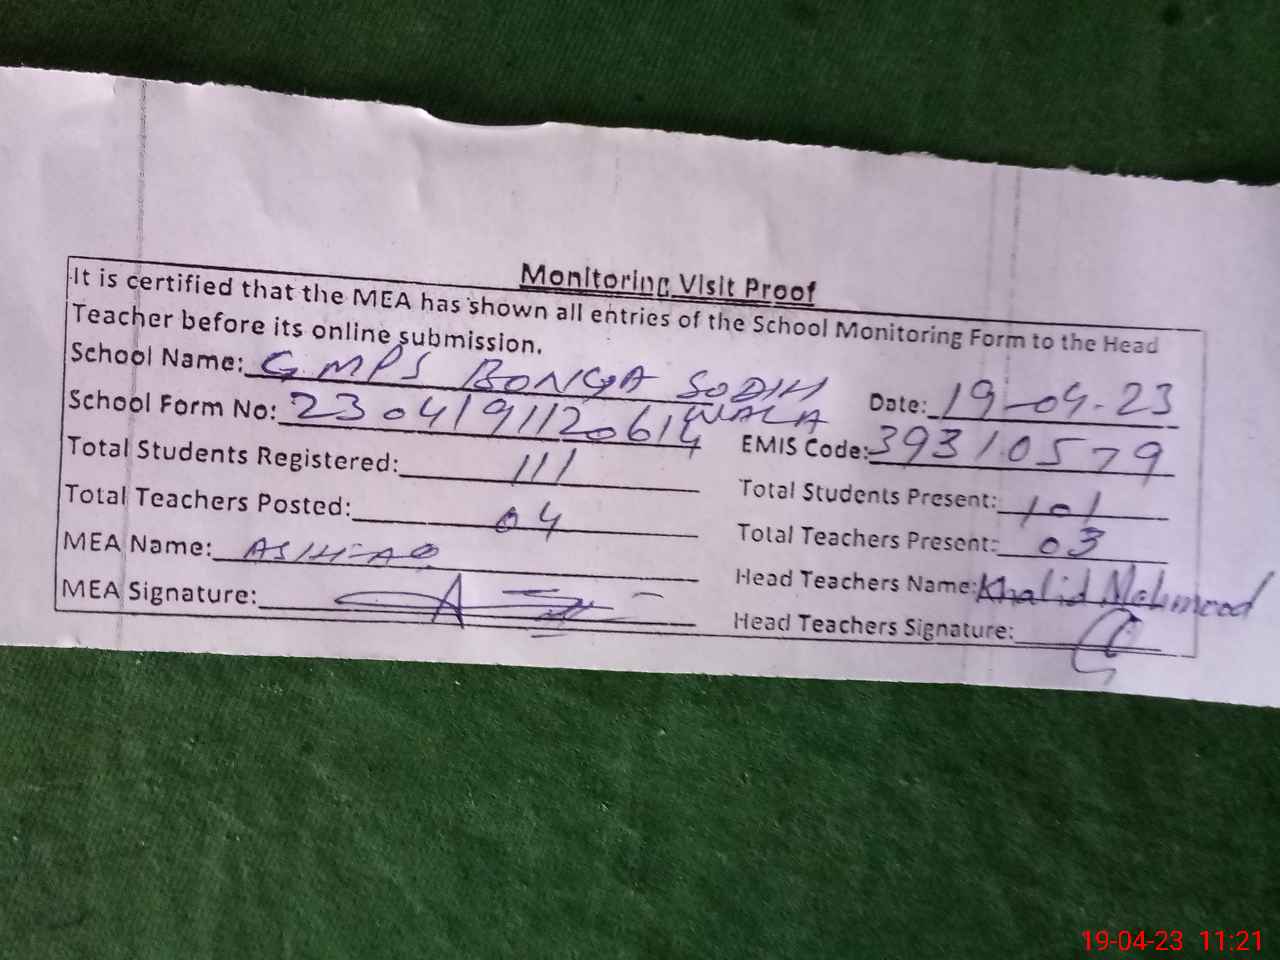 Monitoring Visit Proof
It is certified that the MEA has shown all entries of the School Monitoring Form to the Head
Teacher before its online submission.
School Name: G.MPS BONGA SODIH WALA Date: 19-04-23
School Form No: 2304191120614 EMIS Code: 39310579
Total Students Registered: 111 Total Students Present: 101
Total Teachers Posted: 04 Total Teachers Present: 03
MEA Name: ASHFAQ Head Teachers Name: Khalid Mahmood
MEA Signature: Head Teachers Signature:
19-04-23 11:21